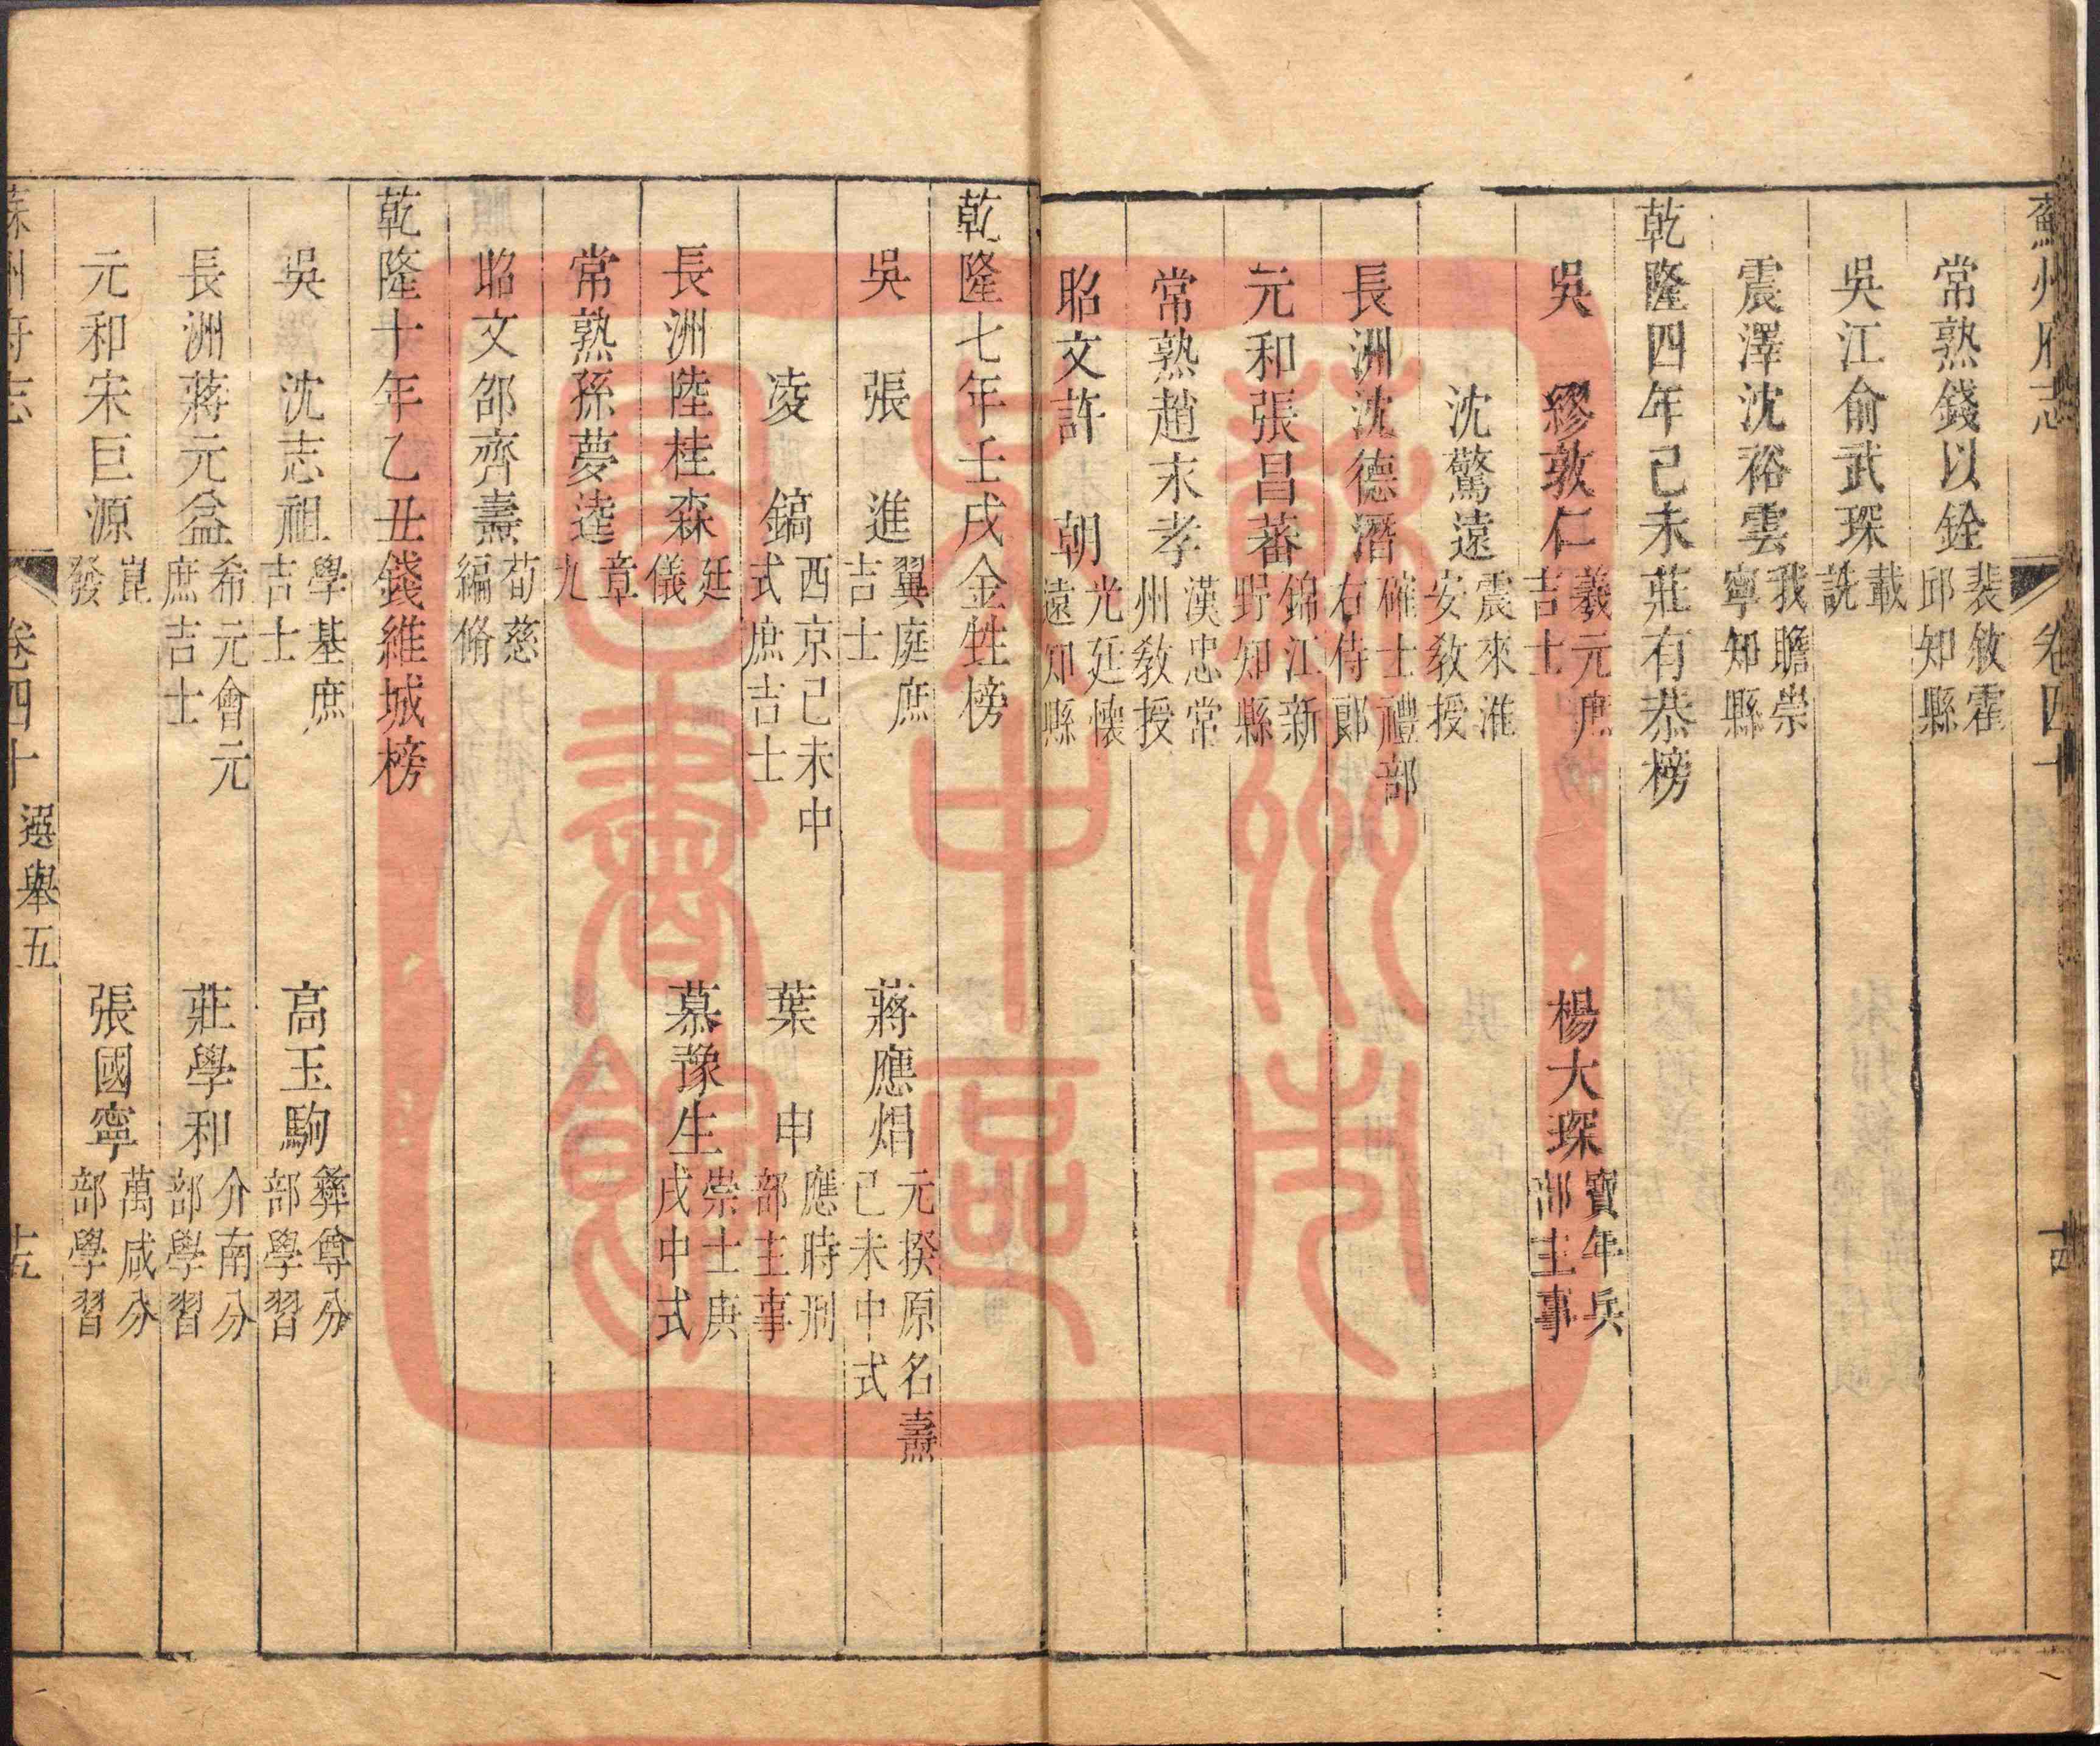 蘇州府志 卷四十 十四
常熟錢以銓 裴敘霍邱知縣
吳江俞武琛 載詵
震澤沈裕雲 我瞻崇寧知縣
乾隆四年己未莊有恭榜
吳 繆敦仁 羲元庶吉士 楊大琛 寶年兵部主事
沈驚遠 震來淮安敎授
長洲沈德潛 確士禮部右侍郞
元和張昌蕃 錦江新野知縣
常熟趙永孝 漢忠常州敎授
昭文許 朝 光廷懷遠知縣
乾隆七年壬戌金甡榜
吳 張 進 翼庭庶吉士 蔣應焻 元揆原名燾己未中式
凌 鎬 西京己未中式庶吉士 葉 申 應時刑部主事
長洲陸桂森 廷儀 慕豫生 崇士庚戌中式
常熟孫夢逵 章九
昭文邵齊燾 荀慈編脩
乾隆十年乙丑錢維城榜
吳 沈志祖 學基庶吉士 高玉駒 彝尊分部學習
長洲蔣元益 希元會元庶吉士 莊學和 介南分部學習
元和宋巨源 崑發 張國寧 萬咸分部學習
蘇州府志 卷四十 選舉五 十五
蘇州市吳中區圖書館